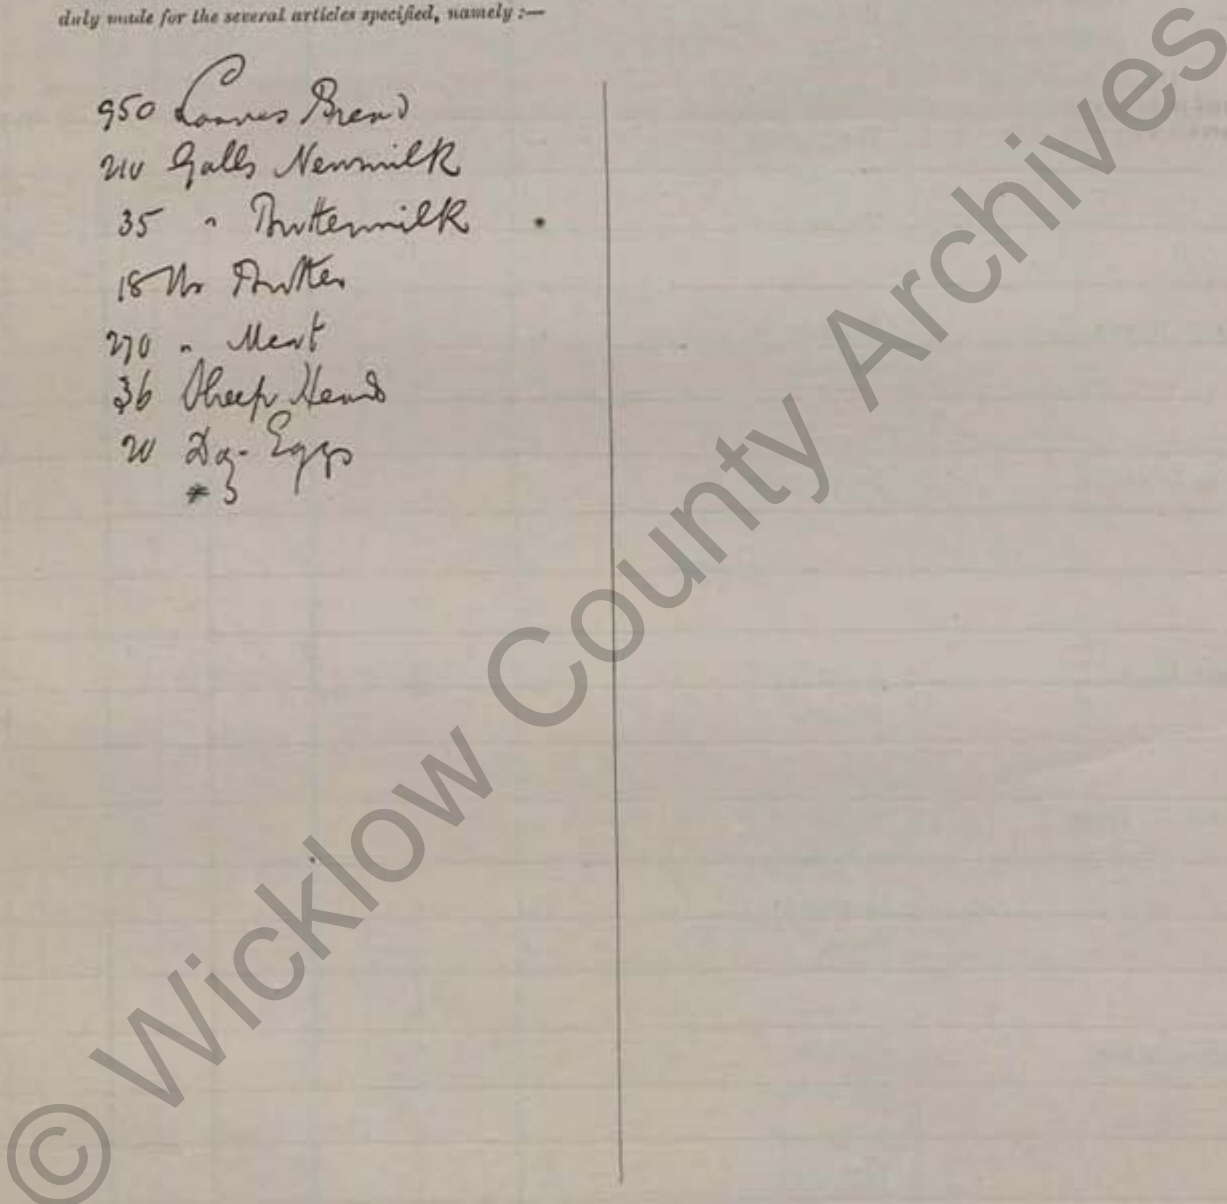 duly made for the several articles specified, namely :—
950 Loaves Bread
210 Galls Newmilk
35 " Buttermilk
18 lbs Butter
270 " Meat
36 Sheep Heads
20 Doz- Eggs
© Wicklow County Archives